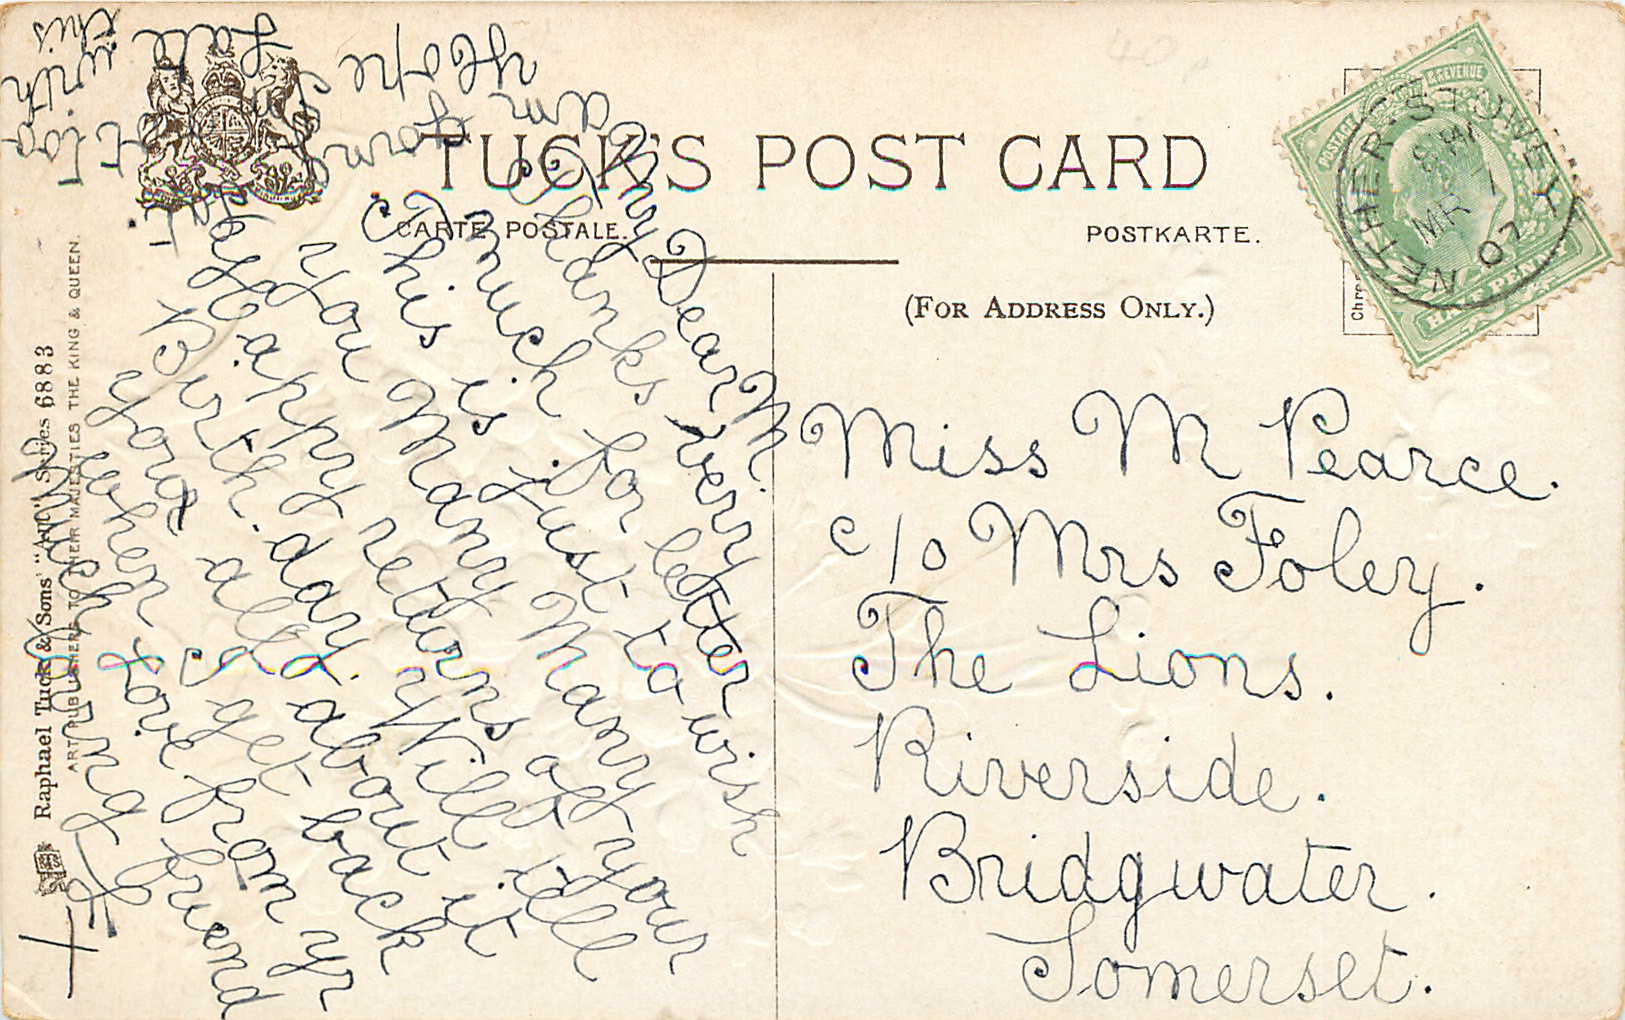 TUCK'S POST CARD
CARTE POSTALE.
POSTKARTE.
(FOR ADDRESS ONLY.)
NETHER-STOWEY
MR 1
07
POSTAGE & REVENUE
HALFPENNY
My Dear M.
Thanks very
much for letter
This is just to wish
you Many Many
Happy returns of your
Birth.day. Will tell
you all about it
when I get back
Much Love from yr
loving friend
Hope
am
late
with
this
Miss M Pearce.
c/o Mrs Foley.
The Lions.
Riverside.
Bridgwater.
Somerset.
Raphael Tuck & Sons' "Art" Series 6883
ART PUBLISHERS TO THEIR MAJESTIES THE KING & QUEEN.